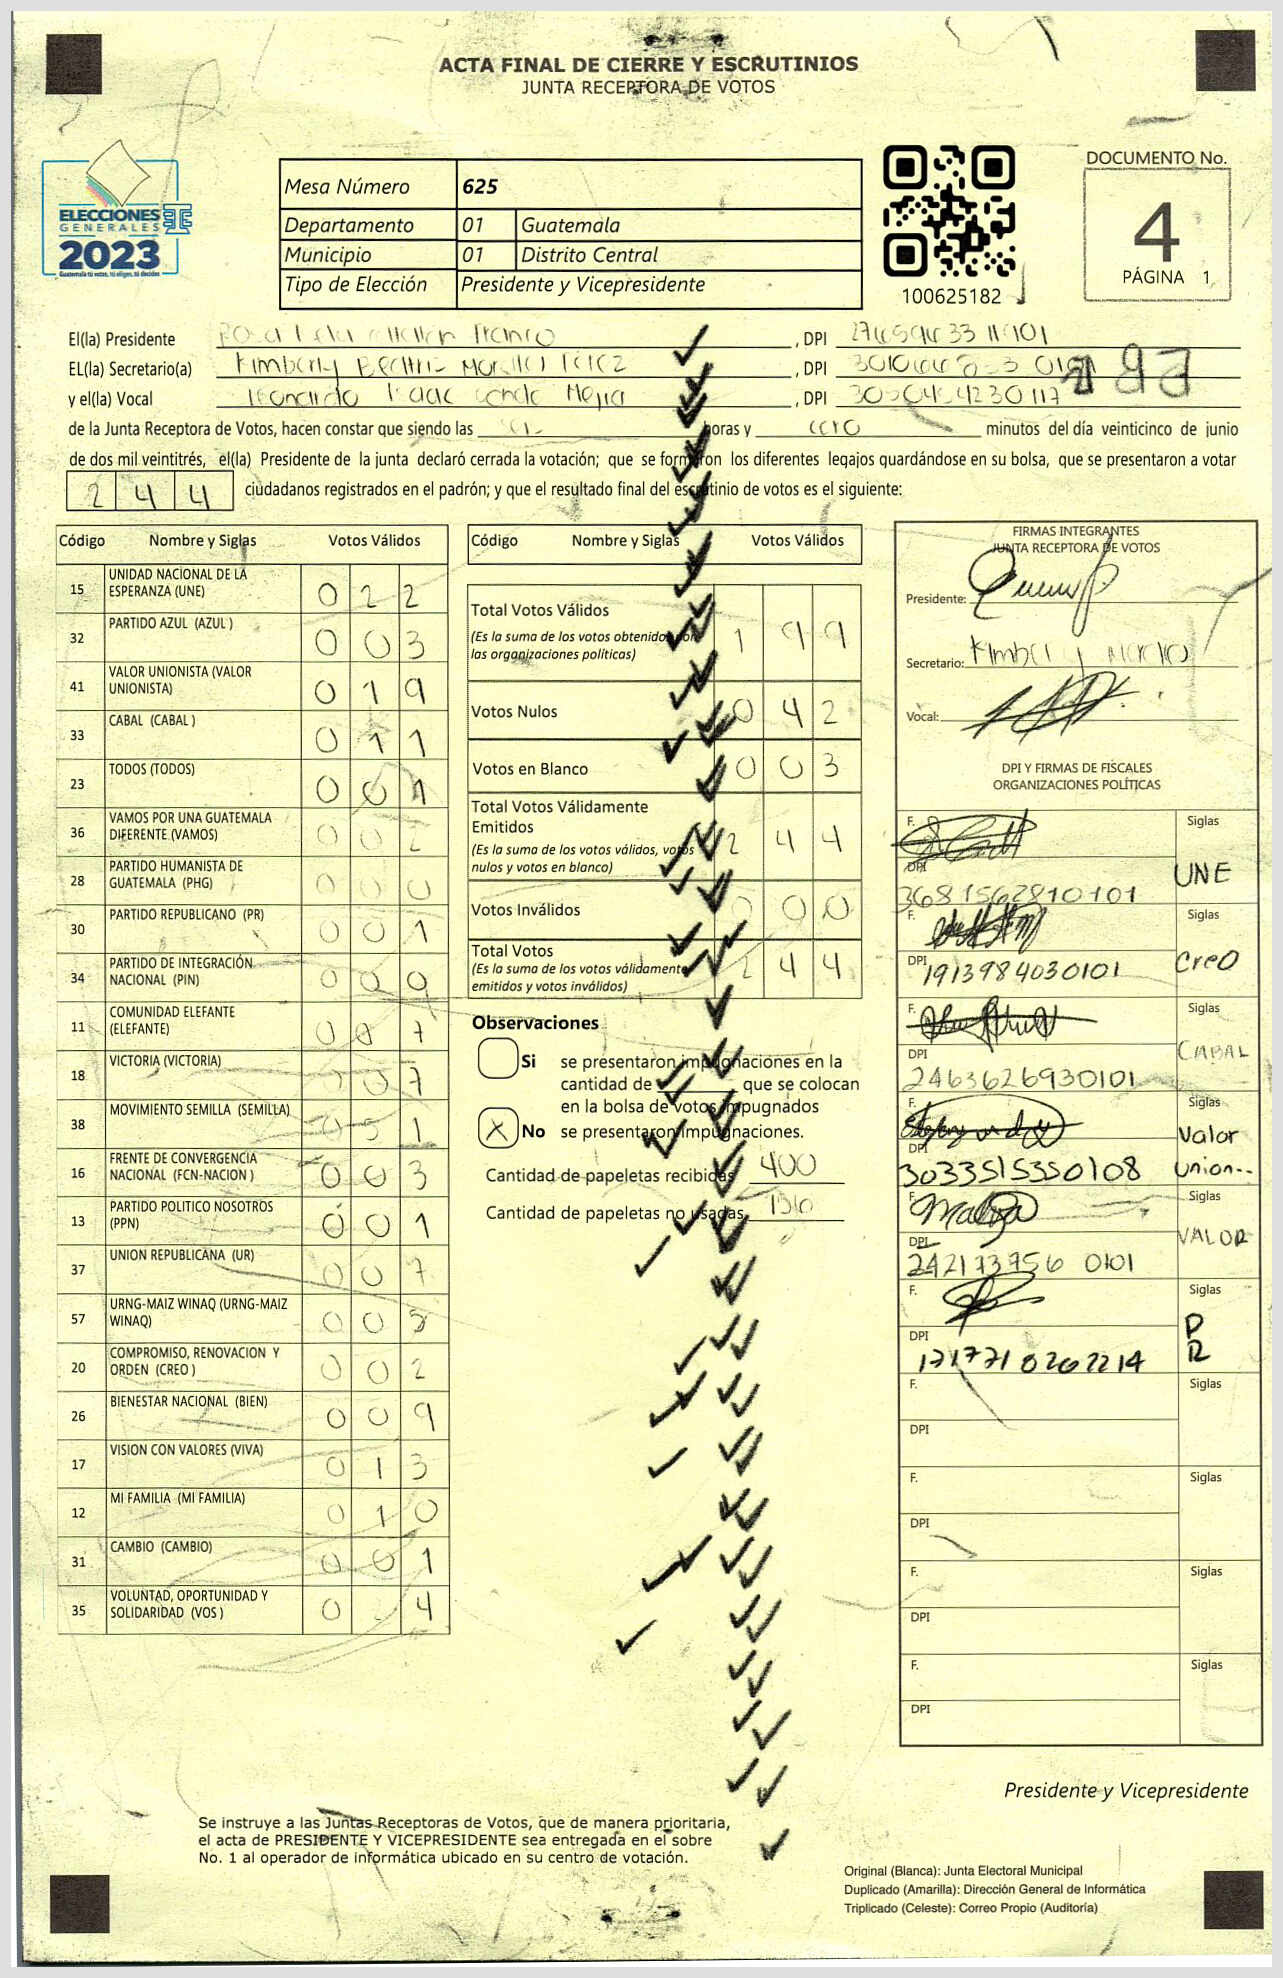 ACTA FINAL DE CIERRE Y ESCRUTINIOS
JUNTA RECEPTORA DE VOTOS
ELECCIONES
GENERALES
2023
Guatemala tú votas, tú eliges, tú decides
Mesa Número 625
Departamento 01 Guatemala
Municipio 01 Distrito Central
Tipo de Elección Presidente y Vicepresidente
100625182
DOCUMENTO No.
4
PÁGINA 1
El(la) Presidente , DPI
EL(la) Secretario(a) Kimberly , DPI
y el(la) Vocal , DPI
de la Junta Receptora de Votos, hacen constar que siendo las horas y cero minutos del día veinticinco de junio
de dos mil veintitrés, el(la) Presidente de la junta declaró cerrada la votación; que se formaron los diferentes legajos guardándose en su bolsa, que se presentaron a votar
244 ciudadanos registrados en el padrón; y que el resultado final del escrutinio de votos es el siguiente:
Código Nombre y Siglas Votos Válidos
15 UNIDAD NACIONAL DE LA ESPERANZA (UNE) 0 2 2
32 PARTIDO AZUL (AZUL ) 0 0 3
41 VALOR UNIONISTA (VALOR UNIONISTA) 0 1 9
33 CABAL (CABAL ) 0 1 1
23 TODOS (TODOS) 0 0 1
36 VAMOS POR UNA GUATEMALA DIFERENTE (VAMOS) 0 0 2
28 PARTIDO HUMANISTA DE GUATEMALA (PHG) 0 0 0
30 PARTIDO REPUBLICANO (PR) 0 0 1
34 PARTIDO DE INTEGRACIÓN NACIONAL (PIN) 0 0
11 COMUNIDAD ELEFANTE (ELEFANTE) 0 0 7
18 VICTORIA (VICTORIA) 0 0 7
38 MOVIMIENTO SEMILLA (SEMILLA) 0 5 1
16 FRENTE DE CONVERGENCIA NACIONAL (FCN-NACION ) 0 0 3
13 PARTIDO POLITICO NOSOTROS (PPN) 0 0 1
37 UNION REPUBLICANA (UR) 0 0 7
57 URNG-MAIZ WINAQ (URNG-MAIZ WINAQ) 0 0
20 COMPROMISO, RENOVACION Y ORDEN (CREO ) 0 0 2
26 BIENESTAR NACIONAL (BIEN) 0 0 9
17 VISION CON VALORES (VIVA) 0 1 3
12 MI FAMILIA (MI FAMILIA) 0 1 0
31 CAMBIO (CAMBIO) 0 0 1
35 VOLUNTAD, OPORTUNIDAD Y SOLIDARIDAD (VOS ) 0 4
Código Nombre y Siglas Votos Válidos
Total Votos Válidos 1 9 9
(Es la suma de los votos obtenidos por
las organizaciones políticas)
Votos Nulos 0 4 2
Votos en Blanco 0 0 3
Total Votos Válidamente
Emitidos 2 4 4
(Es la suma de los votos válidos, votos
nulos y votos en blanco)
Votos Inválidos 0 0 0
Total Votos 2 4 4
(Es la suma de los votos válidamente
emitidos y votos inválidos)
Observaciones
Si se presentaron impugnaciones en la
cantidad de que se colocan
en la bolsa de votos impugnados
X No se presentaron impugnaciones.
Cantidad de papeletas recibidas 400
Cantidad de papeletas no usadas
FIRMAS INTEGRANTES
JUNTA RECEPTORA DE VOTOS
Presidente:
Secretario: Kimberly
Vocal:
DPI Y FIRMAS DE FISCALES
ORGANIZACIONES POLÍTICAS
F. Siglas
DPI UNE
3681562810101
F. Siglas
DPI 1913984030101 CREO
F. Siglas
DPI CABAL
2463626930101
F. Siglas
DPI Valor
3033515350108 Union..
F. Siglas
DPI VALOR
242173756 0101
F. Siglas
DPI P
1717710262214 R
F. Siglas
DPI
F. Siglas
DPI
F. Siglas
DPI
F. Siglas
DPI
Presidente y Vicepresidente
Se instruye a las Juntas Receptoras de Votos, que de manera prioritaria,
el acta de PRESIDENTE Y VICEPRESIDENTE sea entregada en el sobre
No. 1 al operador de informática ubicado en su centro de votación.
Original (Blanca): Junta Electoral Municipal
Duplicado (Amarilla): Dirección General de Informática
Triplicado (Celeste): Correo Propio (Auditoría)